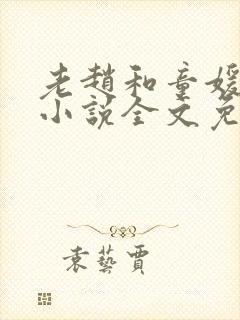 老趙和童媛
小說全文免
袁藝賈